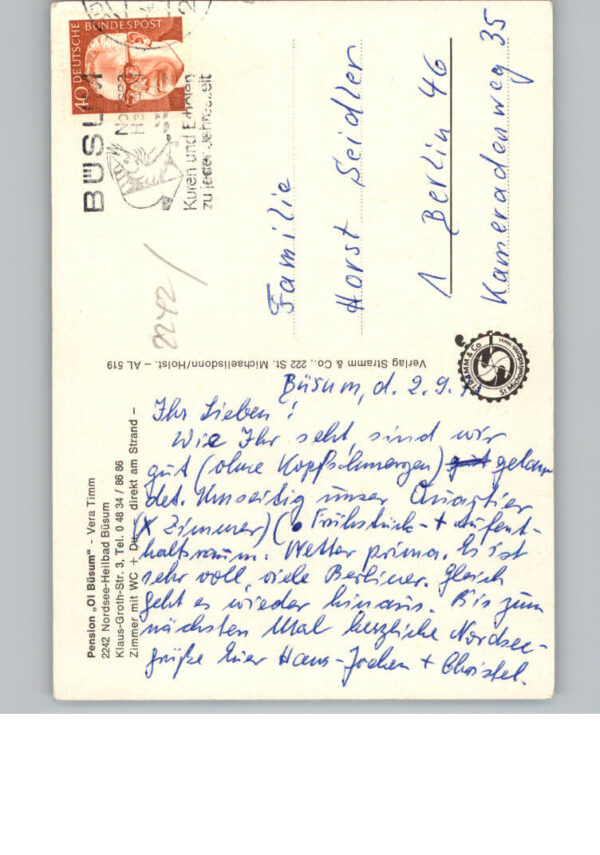 DEUTSCHE BUNDESPOST
40
BÜSUM
Kuren und Erholen
zu jeder Jahreszeit
2242
Familie
Horst Seidler
1 Berlin 46
Kameradenweg 35
Verlag Stramm & Co., 222 St. Michaelisdonn/Holst. – AL 519
STRAMM & Co
Pension „Ol Büsum" - Vera Timm
2242 Nordsee-Heilbad Büsum
Klaus-Groth-Str. 3, Tel. 0 48 34 / 86 86
Zimmer mit WC + Du. direkt am Strand –
Büsum, d. 2.9.
Ihr Lieben!
Wie Ihr seht, sind wir
gut (ohne Kopfschmerzen) gelan
det. Umseitig unser Quartier
(X Zimmer) (• Frühstück- + Aufent-
haltsraum. Wetter prima. Es ist
sehr voll, viele Berliner. Gleich
geht es wieder hinaus. Bis zum
nächsten Mal herzliche Nordsee-
grüße Euer Hans-Jochen + Christel.